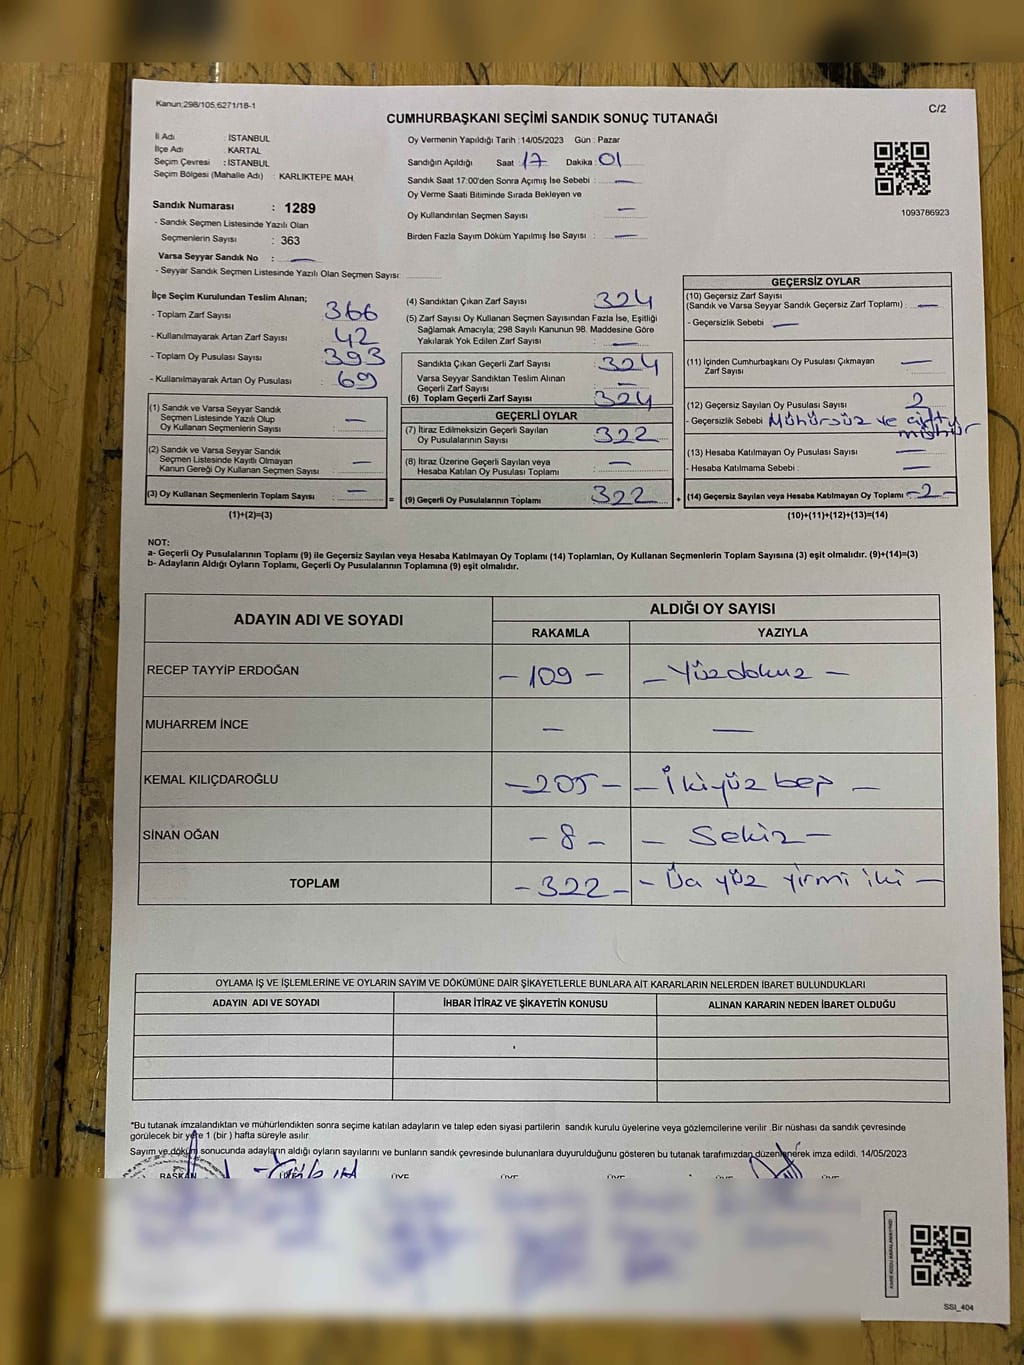 Kanun:298/105,6271/18-1
C/2
CUMHURBAŞKANI SEÇİMİ SANDIK SONUÇ TUTANAĞI
İl Adı : İSTANBUL
İlçe Adı : KARTAL
Seçim Çevresi : İSTANBUL
Seçim Bölgesi (Mahalle Adı) : KARLIKTEPE MAH.
Oy Vermenin Yapıldığı Tarih :14/05/2023 Gün : Pazar
Sandığın Açıldığı Saat : 17 Dakika : 01
Sandık Saat 17:00'den Sonra Açımış İse Sebebi : —
Oy Verme Saati Bitiminde Sırada Bekleyen ve
Oy Kullandırılan Seçmen Sayısı : —
Birden Fazla Sayım Döküm Yapılmış İse Sayısı : —
1093786923
Sandık Numarası : 1289
- Sandık Seçmen Listesinde Yazılı Olan
Seçmenlerin Sayısı : 363
Varsa Seyyar Sandık No : —
- Seyyar Sandık Seçmen Listesinde Yazılı Olan Seçmen Sayısı:
İlçe Seçim Kurulundan Teslim Alınan;
- Toplam Zarf Sayısı : 366
- Kullanılmayarak Artan Zarf Sayısı : 42
- Toplam Oy Pusulası Sayısı : 393
- Kullanılmayarak Artan Oy Pusulası : 69
(1) Sandık ve Varsa Seyyar Sandık
Seçmen Listesinde Yazılı Olup
Oy Kullanan Seçmenlerin Sayısı : —
(2) Sandık ve Varsa Seyyar Sandık
Seçmen Listesinde Kayıtlı Olmayan
Kanun Gereği Oy Kullanan Seçmen Sayısı : —
(3) Oy Kullanan Seçmenlerin Toplam Sayısı : —
(1)+(2)=(3)
(4) Sandıktan Çıkan Zarf Sayısı : 324
(5) Zarf Sayısı Oy Kullanan Seçmen Sayısından Fazla İse, Eşitliği
Sağlamak Amacıyla; 298 Sayılı Kanunun 98. Maddesine Göre
Yakılarak Yok Edilen Zarf Sayısı : —
Sandıkta Çıkan Geçerli Zarf Sayısı : 324
Varsa Seyyar Sandıktan Teslim Alınan
Geçerli Zarf Sayısı : —
(6) Toplam Geçerli Zarf Sayısı : 324
GEÇERLİ OYLAR
(7) İtiraz Edilmeksizin Geçerli Sayılan
Oy Pusulalarının Sayısı : 322
(8) İtiraz Üzerine Geçerli Sayılan veya
Hesaba Katılan Oy Pusulası Toplamı : —
= (9) Geçerli Oy Pusulalarının Toplamı : 322 +
GEÇERSİZ OYLAR
(10) Geçersiz Zarf Sayısı
(Sandık ve Varsa Seyyar Sandık Geçersiz Zarf Toplamı) : —
- Geçersizlik Sebebi : —
(11) İçinden Cumhurbaşkanı Oy Pusulası Çıkmayan
Zarf Sayısı : —
(12) Geçersiz Sayılan Oy Pusulası Sayısı : 2
- Geçersizlik Sebebi : Mühürsüz ve çift
mühür
(13) Hesaba Katılmayan Oy Pusulası Sayısı : —
- Hesaba Katılmama Sebebi : —
(14) Geçersiz Sayılan veya Hesaba Katılmayan Oy Toplamı : -2-
(10)+(11)+(12)+(13)=(14)
NOT:
a- Geçerli Oy Pusulalarının Toplamı (9) ile Geçersiz Sayılan veya Hesaba Katılmayan Oy Toplamı (14) Toplamları, Oy Kullanan Seçmenlerin Toplam Sayısına (3) eşit olmalıdır. (9)+(14)=(3)
b- Adayların Aldığı Oyların Toplamı, Geçerli Oy Pusulalarının Toplamına (9) eşit olmalıdır.
ADAYIN ADI VE SOYADI
ALDIĞI OY SAYISI
RAKAMLA YAZIYLA
RECEP TAYYİP ERDOĞAN – 109 – – Yüzdokuz –
MUHARREM İNCE — —
KEMAL KILIÇDAROĞLU – 205 – – İkiyüz beş –
SİNAN OĞAN – 8 – – Sekiz –
TOPLAM – 322 – – Üç yüz yirmi iki –
OYLAMA İŞ VE İŞLEMLERİNE VE OYLARIN SAYIM VE DÖKÜMÜNE DAİR ŞİKAYETLERLE BUNLARA AİT KARARLARIN NELERDEN İBARET BULUNDUKLARI
ADAYIN ADI VE SOYADI İHBAR İTİRAZ VE ŞİKAYETİN KONUSU ALINAN KARARIN NEDEN İBARET OLDUĞU
*Bu tutanak imzalandıktan ve mühürlendikten sonra seçime katılan adayların ve talep eden siyasi partilerin sandık kurulu üyelerine veya gözlemcilerine verilir .Bir nüshası da sandık çevresinde
görülecek bir yere 1 (bir ) hafta süreyle asılır.
Sayım ve döküm sonucunda adayların aldığı oyların sayılarını ve bunların sandık çevresinde bulunanlara duyurulduğunu gösteren bu tutanak tarafımızdan düzenlenerek imza edildi. 14/05/2023
BAŞKAN ÜYE ÜYE ÜYE ÜYE ÜYE
SSI_404